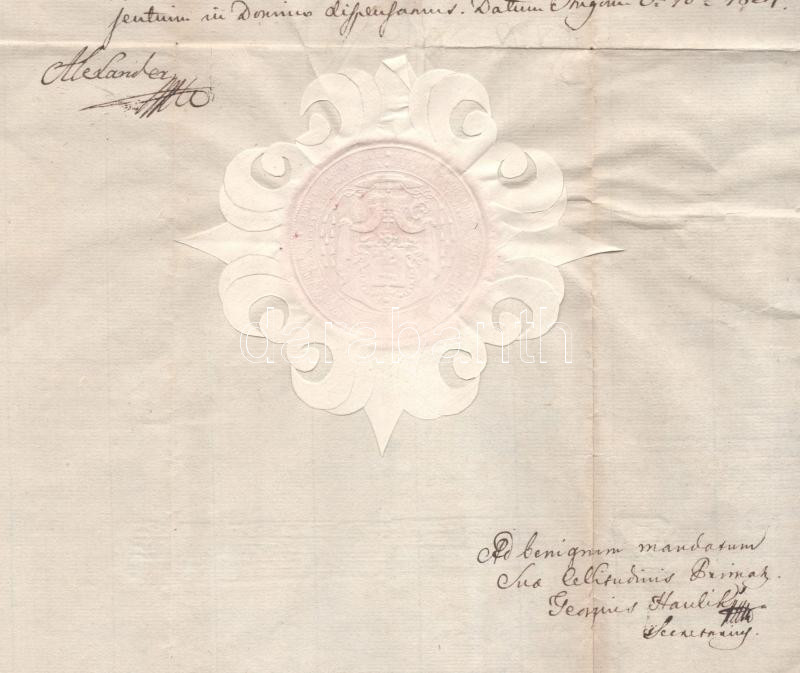 sentium in Domino dispensamus. Datum Strigonii
Alexander
darabanth
Ad benignum mandatum
Suae Celsitudinis Primat.
Georgius Haulik
Secretarius.